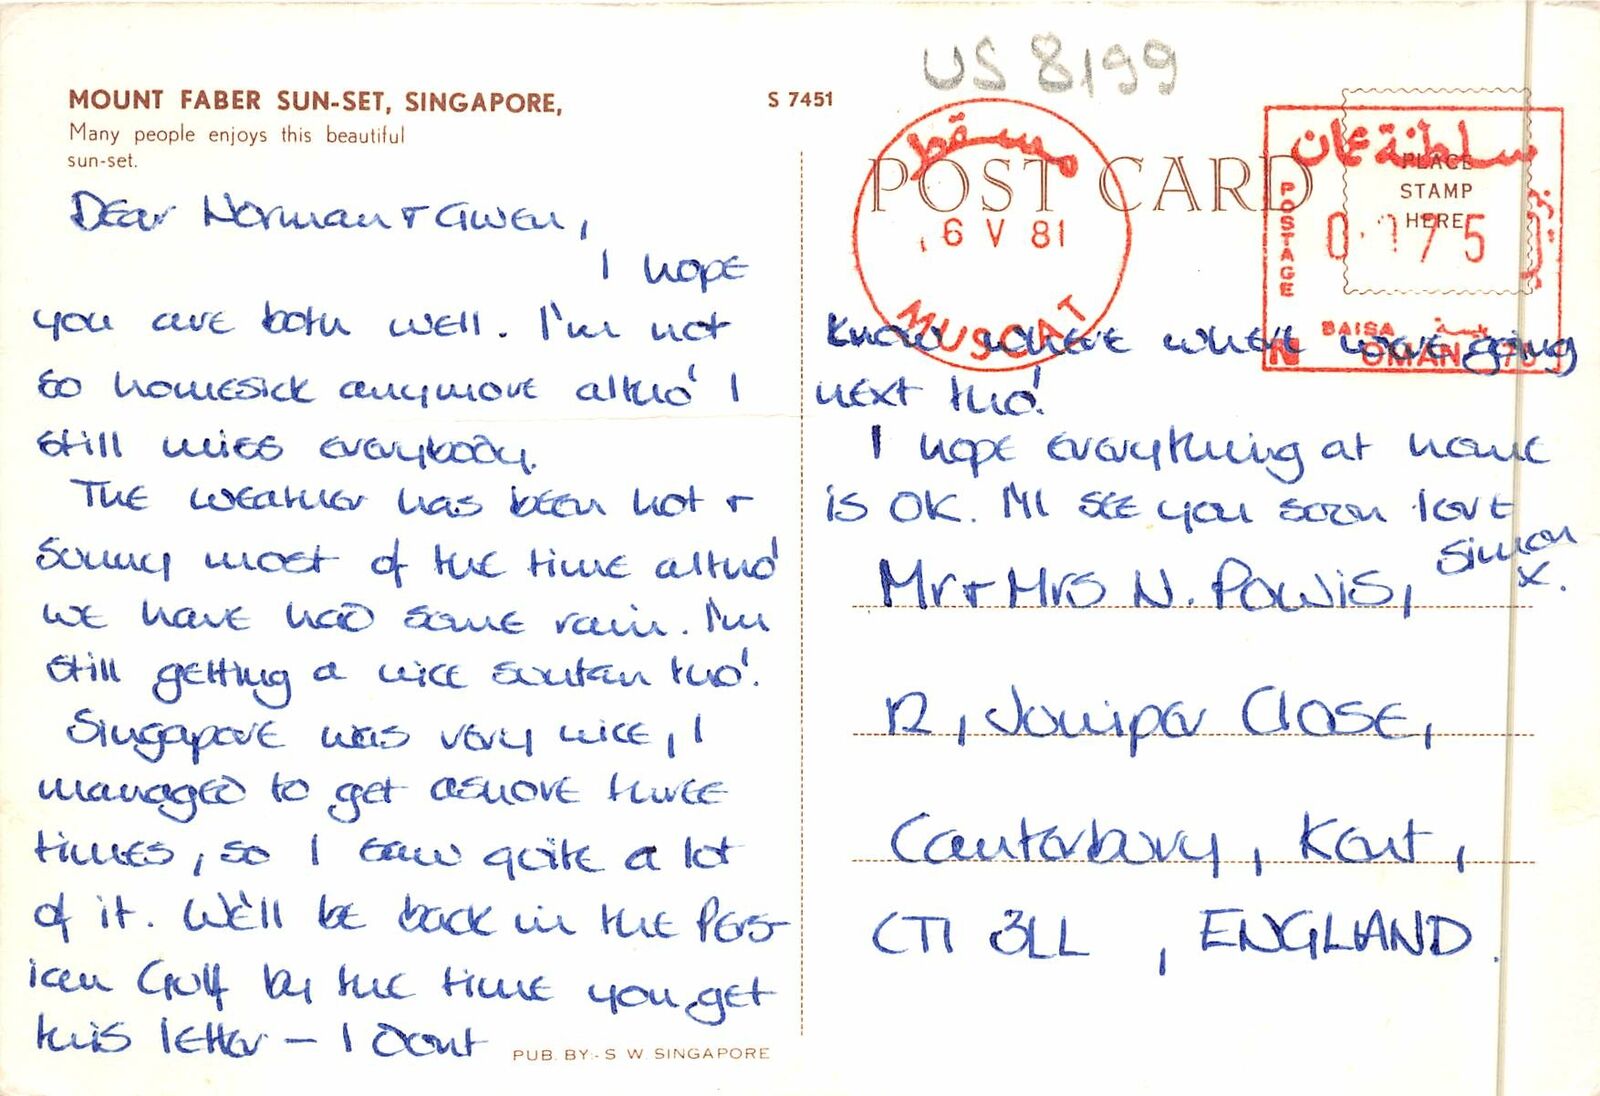 US 8199
MOUNT FABER SUN-SET, SINGAPORE,
Many people enjoys this beautiful
sun-set.
S 7451
POST CARD
مسقط
6 V 81
MUSCAT
سلطنة عمان
POSTAGE
PLACE
STAMP
HERE
0.175
BAISA بيسة
N OMAN
Dear Norman + Gwen,
I hope
you are both well. I'm not
so homesick anymore altho' I
still miss everybody.
The weather has been hot +
sunny most of the time altho'
we have had some rain. I'm
still getting a nice suntan tho'.
Singapore was very nice, I
managed to get ashore three
times, so I saw quite a lot
of it. We'll be back in the Pers-
ian Gulf by the time you get
this letter - I dont
know where when we're going
next tho'.
I hope everything at home
is OK. I'll see you soon love
Simon
x.
Mr + Mrs N. Powis,
12, Juniper Close,
Canterbury, Kent,
CT1 3LL, ENGLAND.
PUB. BY:- S. W. SINGAPORE